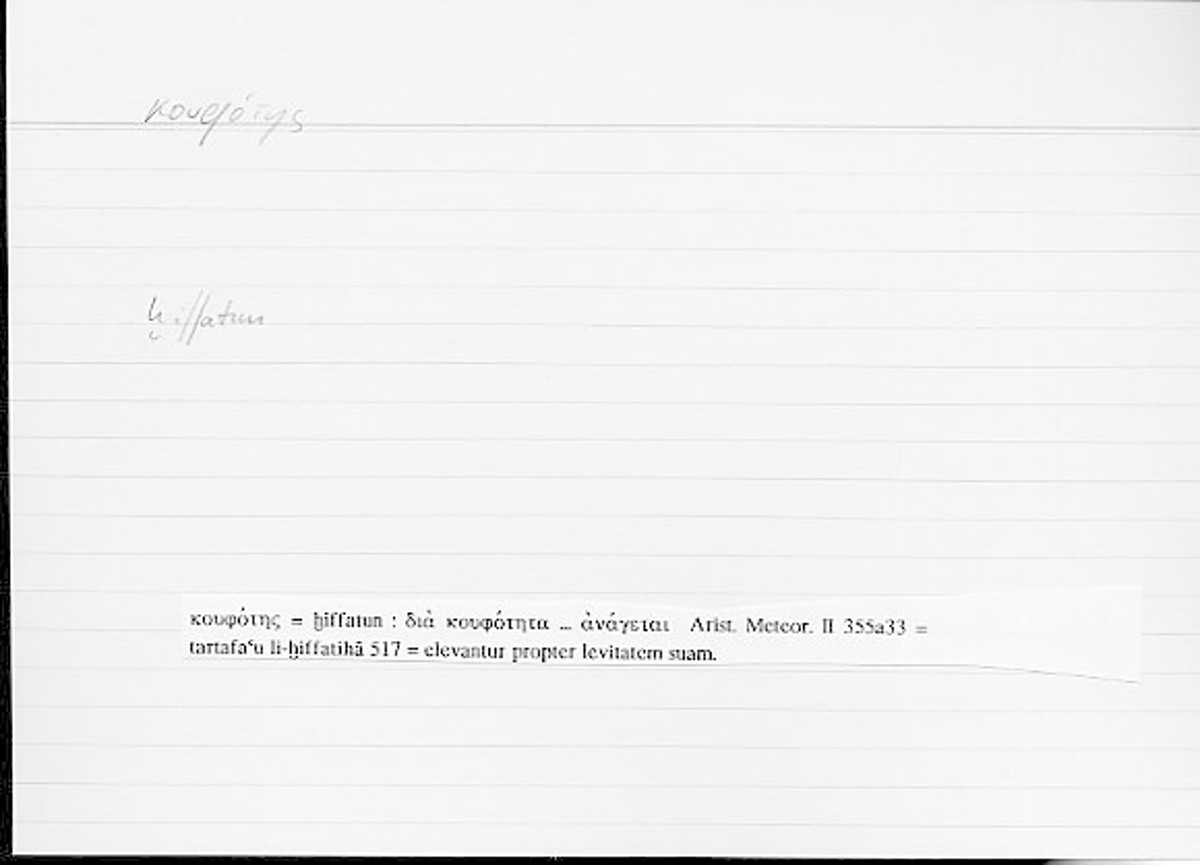 κουφότης
ḫiffatun
κουφότης = ḫiffatun : διὰ κουφότητα ... ἀνάγεται Arist. Meteor. II 355a33 =
tartafaʿu li-ḫiffatihā 517 = elevantur propter levitatem suam.